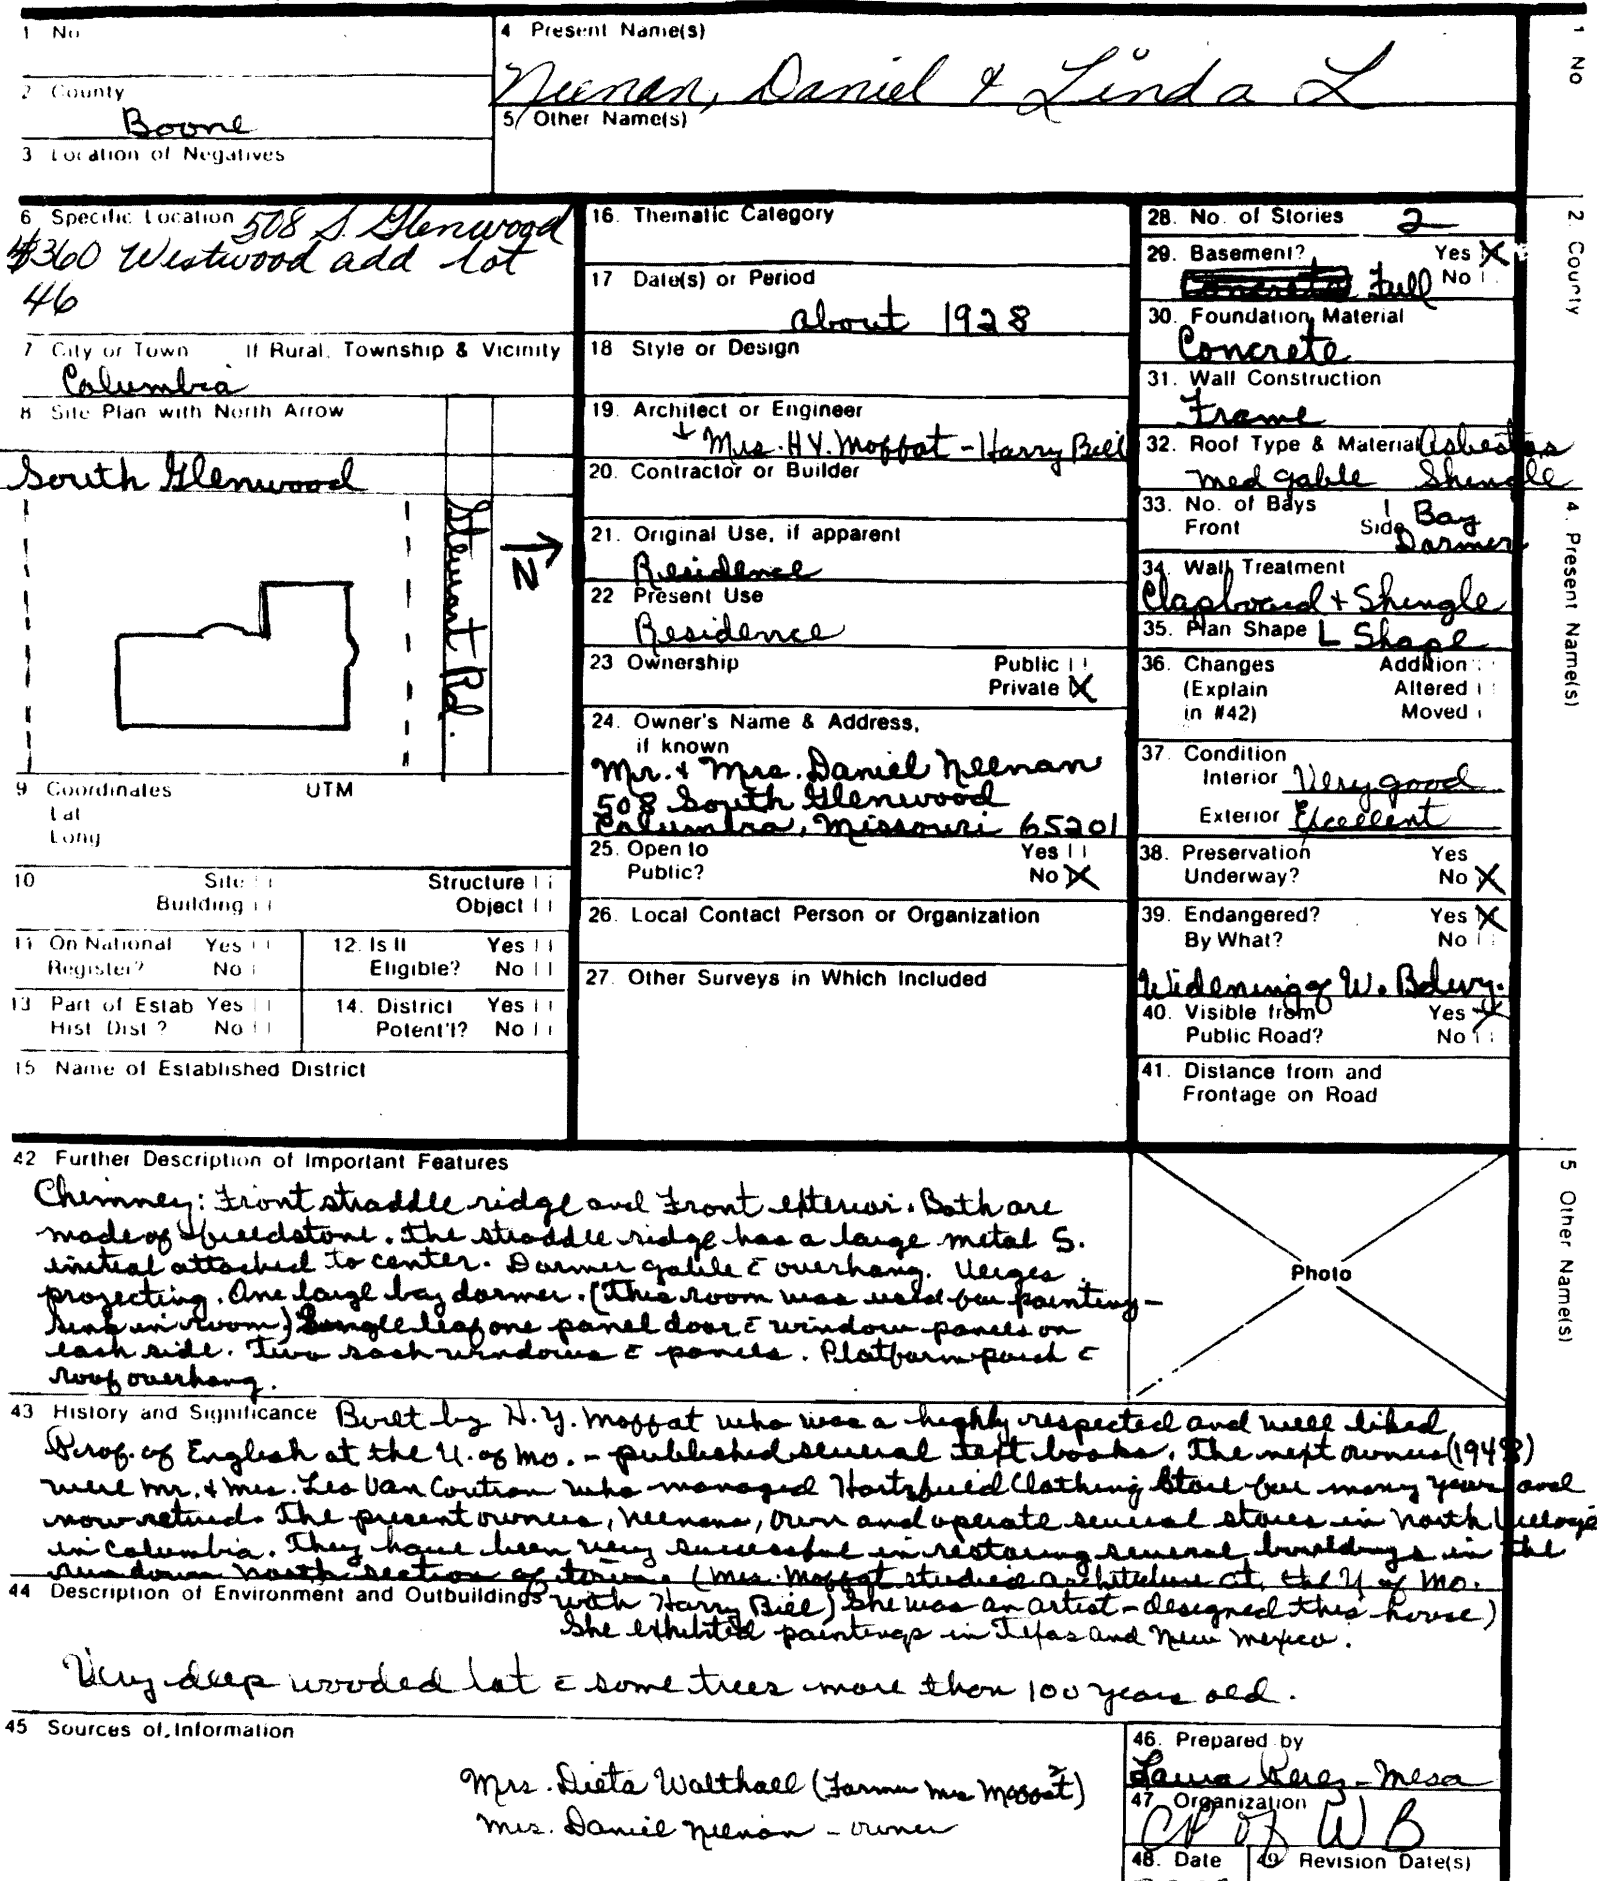 1 No
4 Present Name(s)
Neenan, Daniel & Linda L
2 County
Boone
5 Other Name(s)
3 Location of Negatives
6 Specific Location 508 S. Glenwood
#360 Westwood add lot
46
7 City or Town If Rural, Township & Vicinity
Columbia
8 Site Plan with North Arrow
South Glenwood
Stewart Rd.
N
9 Coordinates UTM
Lat
Long
10 Site Structure
Building Object
11 On National Register? Yes No
12. Is It Eligible? Yes No
13 Part of Estab Hist Dist? Yes No
14. District Potent'l? Yes No
15 Name of Established District
16. Thematic Category
17 Date(s) or Period
about 1928
18 Style or Design
19. Architect or Engineer
Mrs. H.Y. Moffat - Harry Bill
20. Contractor or Builder
21. Original Use, if apparent
Residence
22 Present Use
Residence
23 Ownership Public
Private X
24. Owner's Name & Address,
if known
Mr. & Mrs. Daniel Neenan
508 South Glenwood
Columbia, Missouri 65201
25. Open to Yes
Public? No X
26. Local Contact Person or Organization
27. Other Surveys in Which Included
28. No. of Stories 2
29. Basement? Yes X
Full No
30. Foundation Material
Concrete
31. Wall Construction
Frame
32. Roof Type & Material Asbestos
med gable Shingle
33. No. of Bays 1 Bay
Front Side Dormer
34. Wall Treatment
Clapboard + Shingle
35. Plan Shape L Shape
36. Changes Addition
(Explain Altered
in #42) Moved
37. Condition
Interior Very good
Exterior Excellent
38. Preservation Yes
Underway? No X
39. Endangered? Yes X
By What? No
Widening of W. Bdwy.
40. Visible from Yes X
Public Road? No
41. Distance from and
Frontage on Road
42 Further Description of Important Features
Chimney: Front straddle ridge and Front exterior. Both are
made of fieldstone. The straddle ridge has a large metal S.
initial attached to center. Dormer gable c overhang. Verges
projecting. One large bay dormer. (This room was used for painting -
sink in room) Single leaf one panel door c window panels on
each side. Two sash windows c panels. Platform porch c
roof overhang.
Photo
43 History and Significance Built by H.Y. Moffat who was a highly respected and well liked
Prof. of English at the U. of Mo. - published several text books. The next owners (1948)
were Mr. & Mrs. Leo Van Coutren who managed Hartzfield Clothing Store for many years and
now retired. The present owners, Neenans, own and operate several stores in North Village
in Columbia. They have been very successful in restoring several buildings in the
run down North section of town. (Mrs. Moffat studied architecture at the U of Mo.
44 Description of Environment and Outbuildings with Harry Bill) She was an artist - designed this house)
She exhibited paintings in Texas and New Mexico.
Very deep wooded lot c some trees more than 100 years old.
45 Sources of Information
Mrs. Dieta Walthall (Former Mrs Moffat)
Mrs. Daniel Neenan - owner
46. Prepared by
Laura Perez-Mesa
47. Organization
CP of WB
48. Date 49. Revision Date(s)
1 No
2. County
4. Present Name(s)
5 Other Name(s)